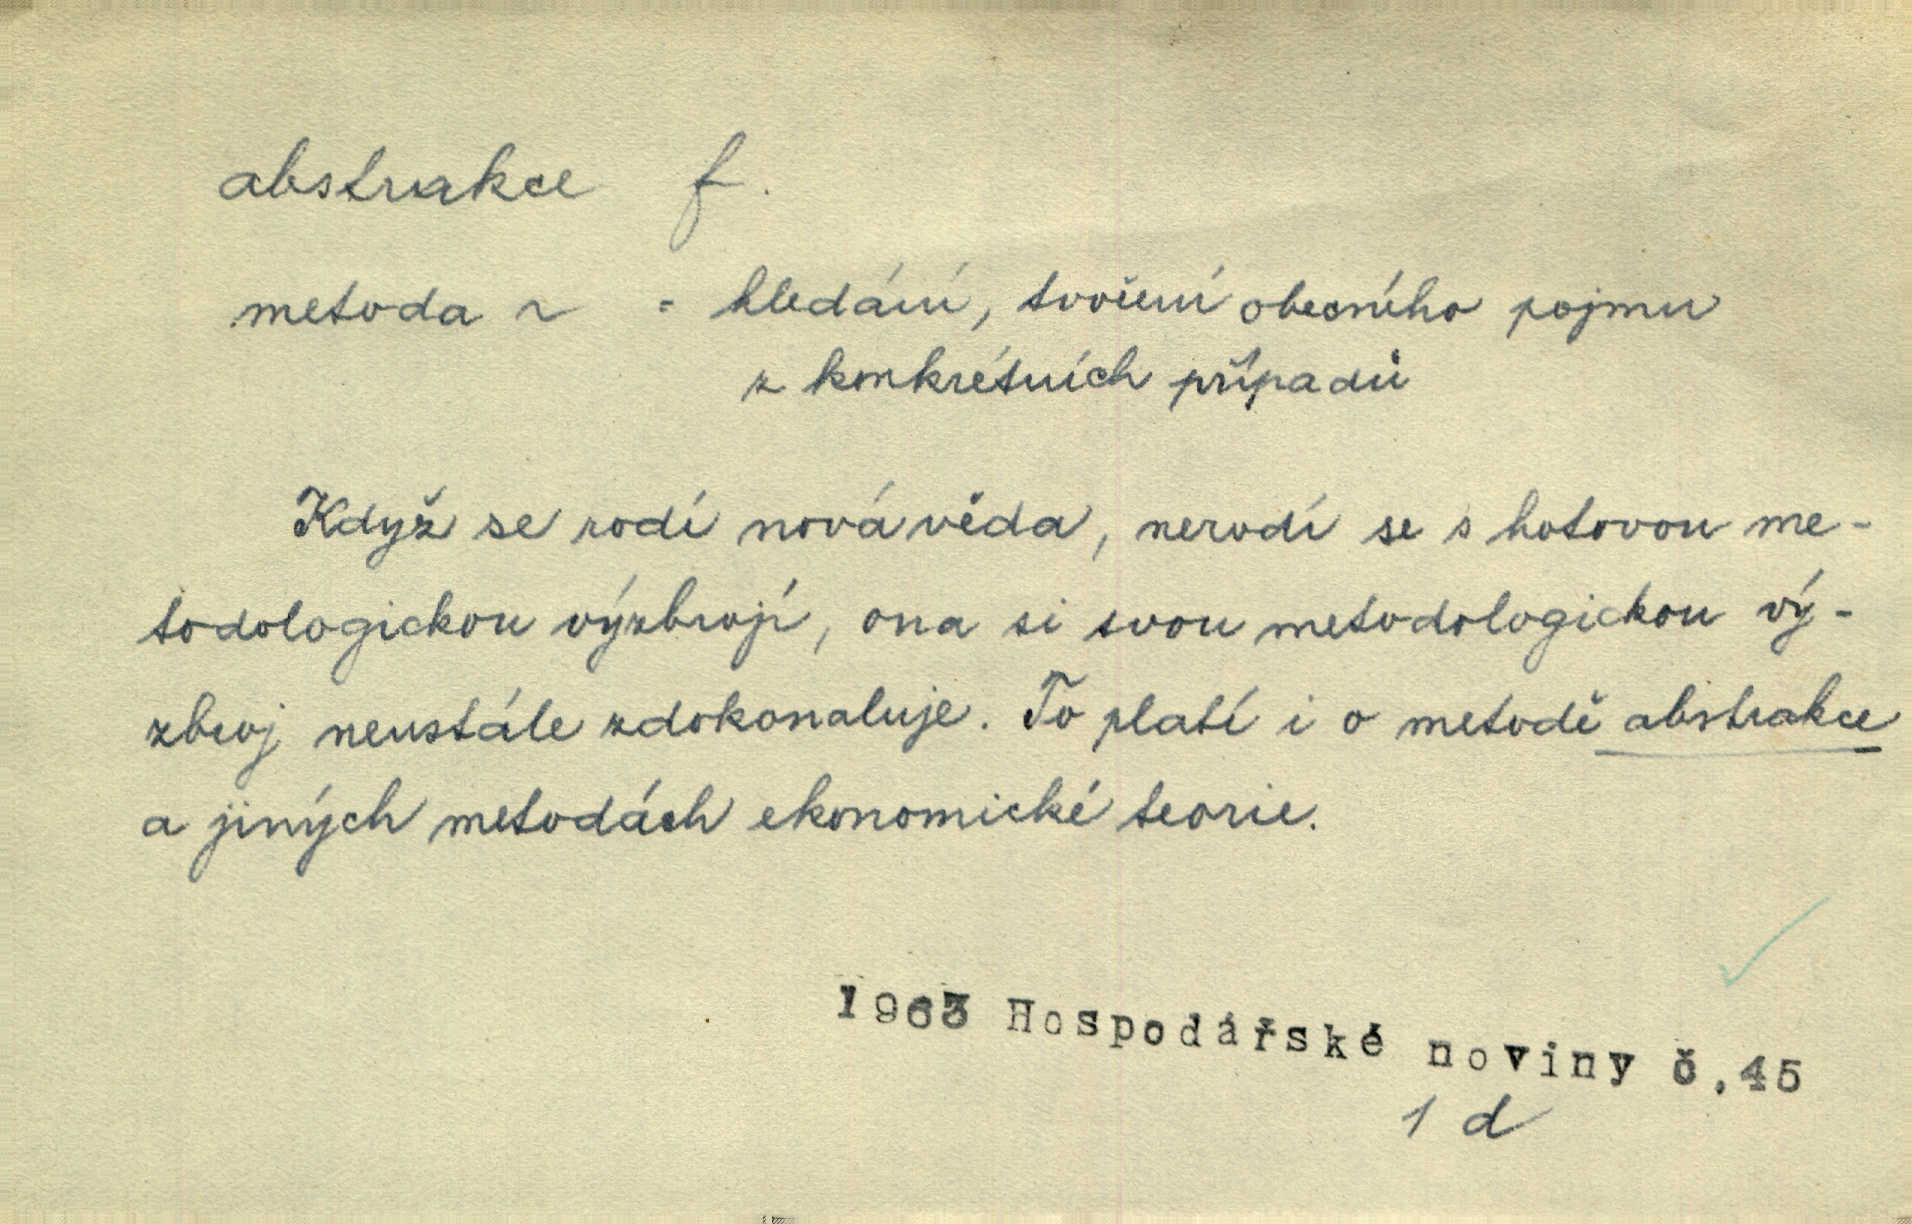 abstrakce f.
metoda ~ = hledání, tvoření obecného pojmu
z konkrétních případů
Když se rodí nová věda, nerodí se s hotovou me-
todologickou výzbrojí, ona si svou metodologickou vý-
zbroj neustále zdokonaluje. To platí i o metodě abstrakce
a jiných metodách ekonomické teorie.
1963 Hospodářské noviny č.45
1 d